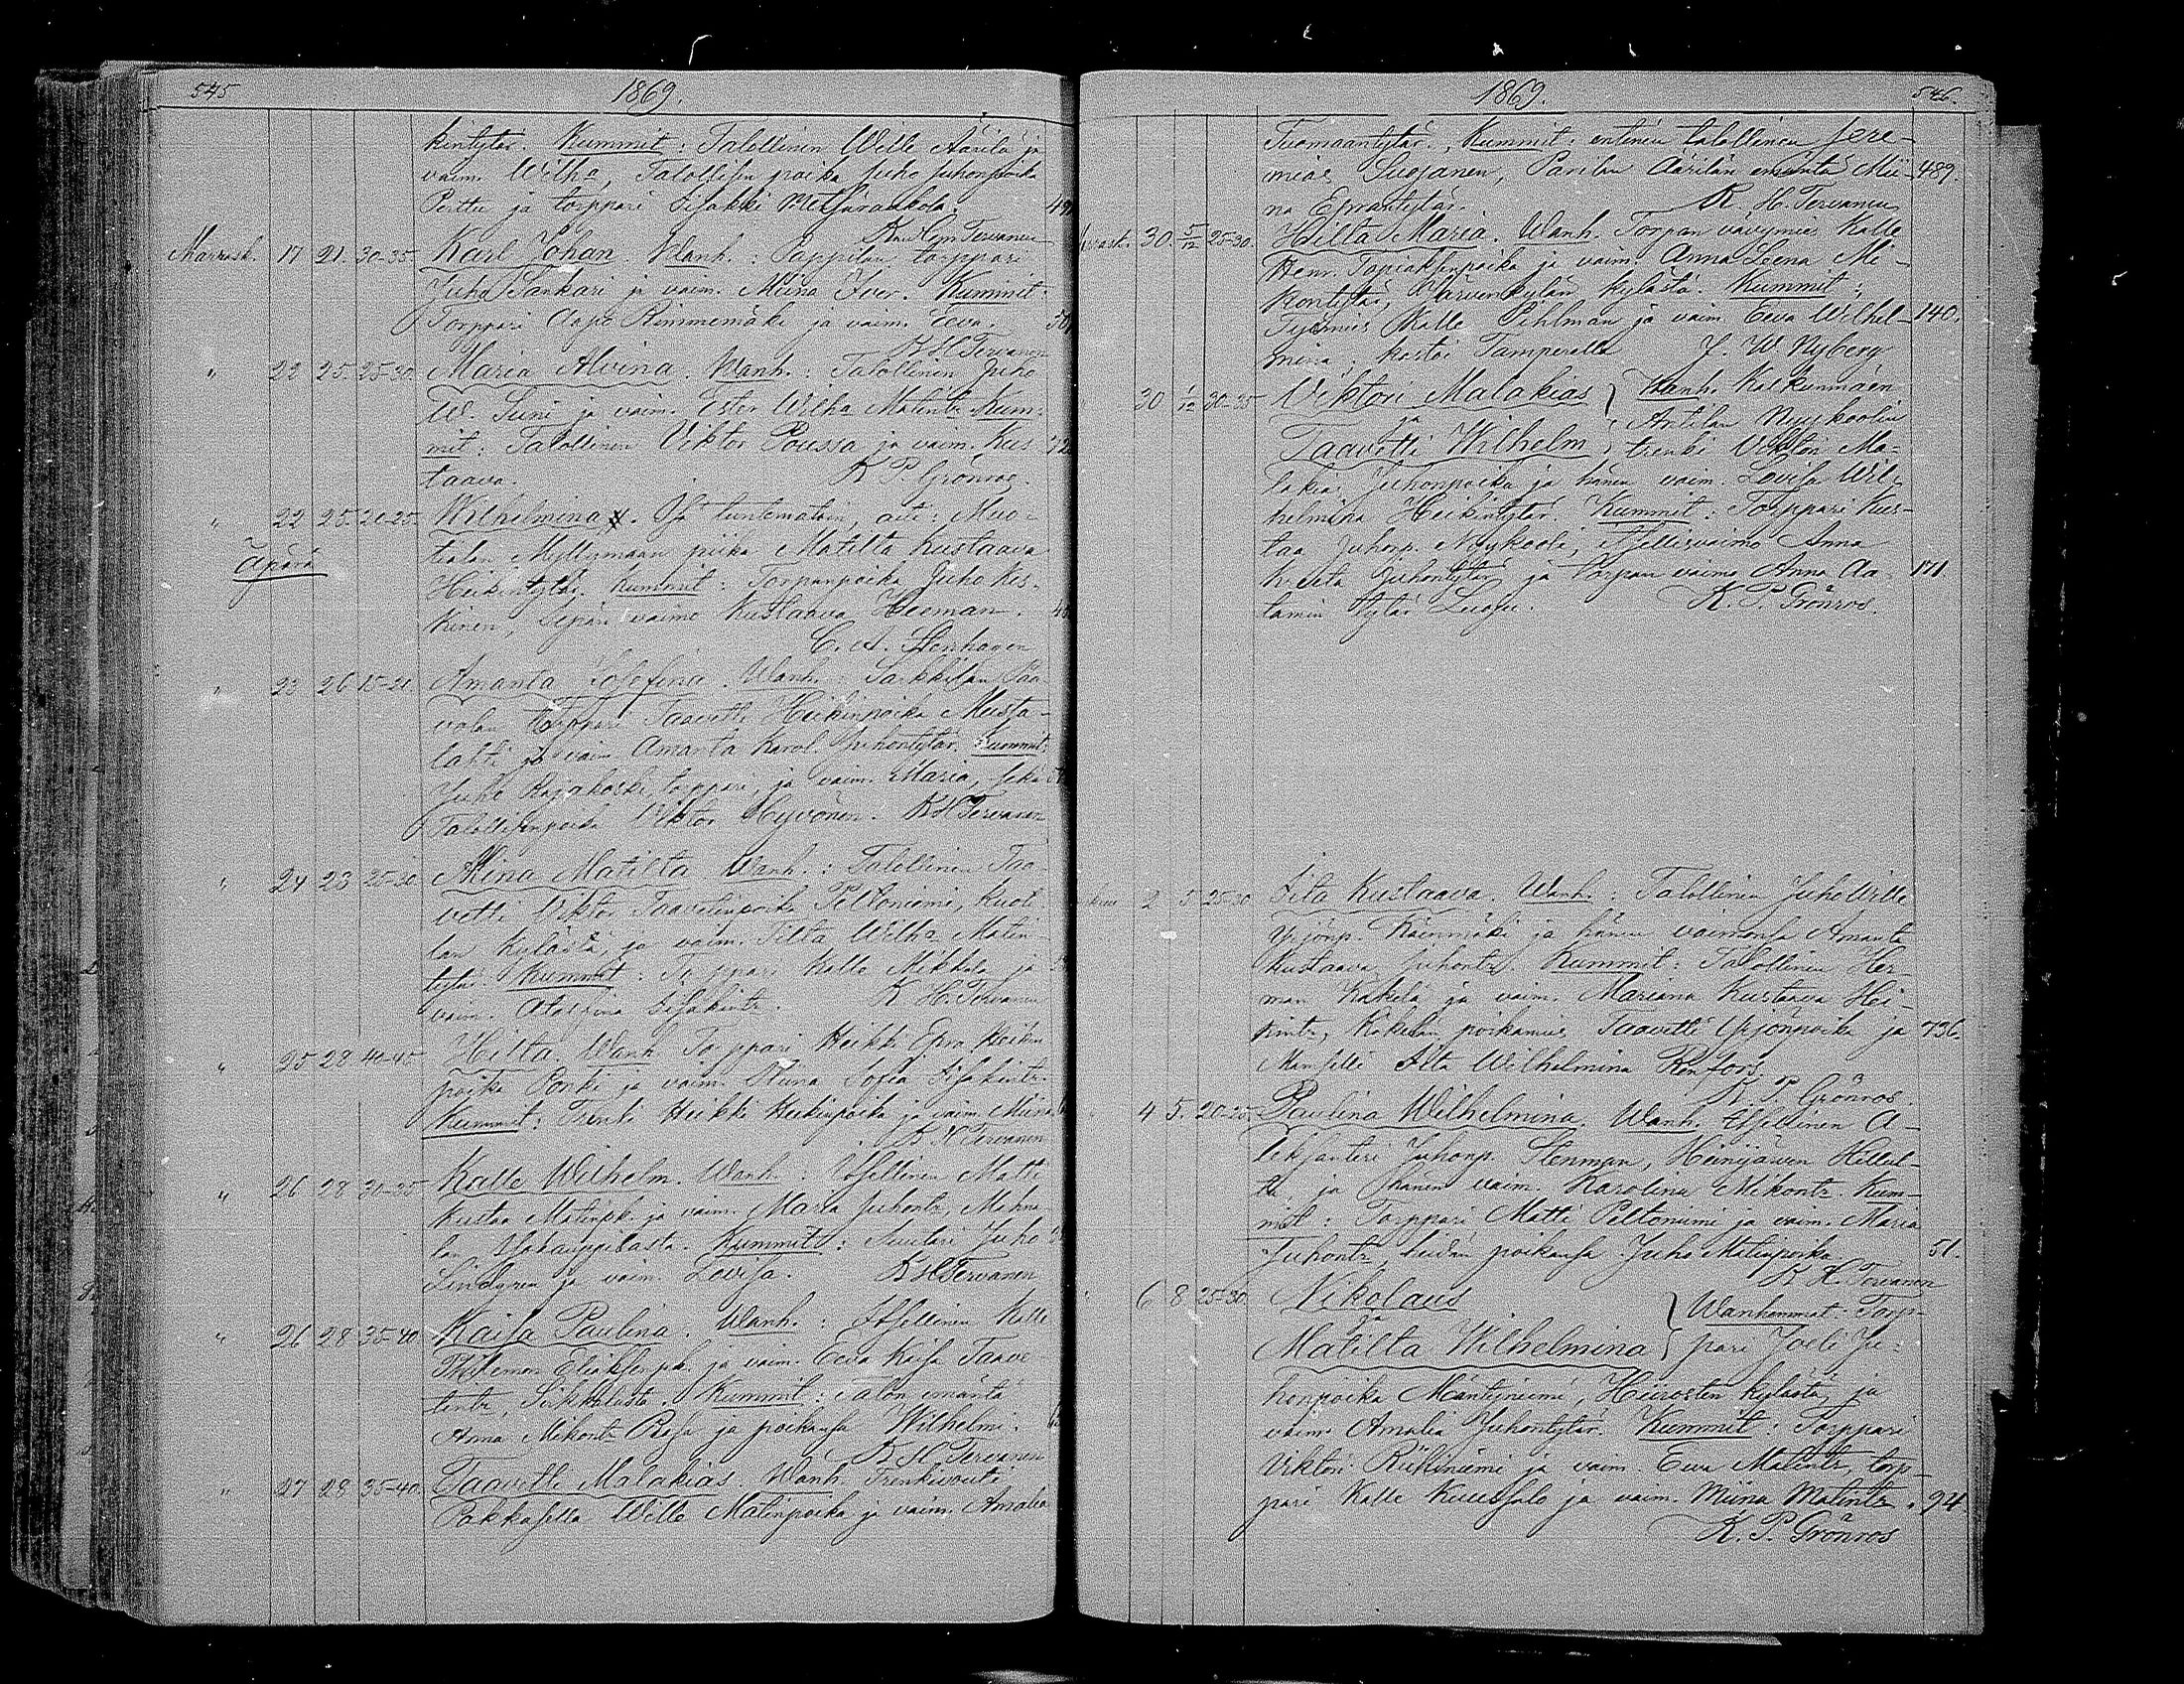 545
1869.
kintytär. Kummit: Talollinen Wille Äärilä ja
vaim. Wilha, Talollisen poika Juho Juhonpoika
Perttu ja torppari
Marrask. 17 21. 30-35 Karl Johan. Wanh.: Pappilan torppari
Juho Sankari ja vaim. Miina Iver. Kummit:
Torppari Aapo Rimmemäki ja vaim. Eeva.
K H Tervanen
" 22 25. 25-30. Maria Alvina. Wanh.: Talollinen Juho
W. Suni ja vaim. Ester Wilha Matintr. Kum-
mit: Talollinen Viktor Poussa ja vaim. Kus-
taava. K P. Grönros.
" 22 25. 20-25. Wilhelmina. Isä tuntematoin, äiti: Muo-
tialan Myllymaan piika Matilta Kustaava
Äpärä
Heikintytär. Kummit: Torpanpoika Juho Kes-
kinen, Sepän vaimo Kustaava Heoman.
C. A. Stenhagen
" 23 26 15-20. Amanta Josefina. Wanh.: Sarkkilan Paa-
volan torppari Taavetti Heikinpoika Musta-
lahti ja vaim Amanta Karol. Juhontytär. Kummit:
Juho Rajakoski, torppari, ja vaim. Maria, sekä
Talollisenpoika Viktor Hyvönen. K H Tervanen
" 24 28 25-30 Miina Matilta Wanh.: Talollinen Taa-
vetti Viktor Taavetinpoika Peltoniemi, Kuoti-
lan kylästä, ja vaim. Tilta Wilha Matin-
tytär. Kummit: Torppari Kalle Mikkola ja
vaim. Atolfina Isakintr. K H. Tervanen
" 25 28 40-45 Hilta. Wanh Torppari Heikki Epra Heikin
poika Ponki ja vaim. Stiina Sofia Isakintr.
Kummit: Trenki Heikki Heikinpoika ja vaim. Miina
K H Tervanen
" 26 28 30-35 Kalle Wilhelm. Wanh.: Itsellinen Matti
Kustaa Matinpk. ja vaim. Maria Juhontr, Mahna-
lan Kummit: Suutari Juho
Lindgren ja vaim. Lovisa. K H Tervanen
" 26 28 35-40 Kaisa Paulina. Wanh.: Itsellinen Kalle
Filemon Eliaksenpk. ja vaim. Eeva Kaisa Taave-
tintr, Kummit: Talon emäntä
Anna Mikontr ja poikansa Wilhelmi.
K H Tervanen
" 27 28 35-40. Taavetti Malakias. Wanh. Trenkivouti
Pakkasella Wille Matinpoika ja vaim. Amalia
1869.
546.
Tuomaantytär. Kummit: entinen talollinen Jere-
mias Suojanen, Parilan Äärilän emäntä Mii- 489.
na Eprantytär. K. H. Tervanen
30. 5/12 25-30. Hilta Maria. Wanh. Torpan vävymies Kalle
Henr. Topiaksenpoika ja vaim. Anna Leena Mi-
kontytär, Järvenkylän kylästä. Kummit:
Työmies Kalle Pihlman ja vaim Eeva Wilhel- 140.
mina; kastoi Tampereella J. W. Nyberg
30 1/12 30-35 Viktori Malakias } Wanh. Kalkunmäen
ja Antilan Nyykoolin
Taavetti Wilhelm trenki Viktor Ma-
lakias Juhonpoika ja hänen vaim. Lovisa Wil-
helmina Heikintytär. Kummit: Torppari Kus-
taa Juhonp. Nyykoola, Itsellisvaimo Anna
Kreeta Juhontytär ja torpan vaimo Anna Aa- 171.
tamin tytär K. P. Grönros.
2 5 25-30 Iita Kustaava. Wanh.: Talollinen Juho Wille
Yrjönp. ja hänen vaimonsa Amanta
Kustaava Juhontr. Kummit: Talollinen Her-
man Kakelä ja vaim. Mariana Kustaava Hei-
kintr, Kokelan poikamies Taavetti Yrjönpoika ja 736.
Mamselli Wilhelmina Renfors.
K. P. Grönros.
4 5. 20-25. Paulina Wilhelmina. Wanh. Itsellinen A-
leksanteri Juhonp. Stenman, Heinijärven
ja hänen vaim. Karolina Mikontr. Kum-
mit: Torppari Matti Peltoniemi ja vaim. Maria
Juhontr, heidän poikansa Juho Matinpoika. 51.
K. H. Tervanen
6 8 25-30. Nikolaus } Wanhemmat: Torp-
ja
Matilta Wilhelmina } pari Joeli Ju-
honpoika Mäntyniemi, kylästä, ja
vaim. Amalia Juhontytär. Kummit: Torppari
Viktori ja vaim. Eeva Matintr, torp-
pari Kalle Kuussalo ja vaim. Miina Matintr. 94.
K. P. Grönros